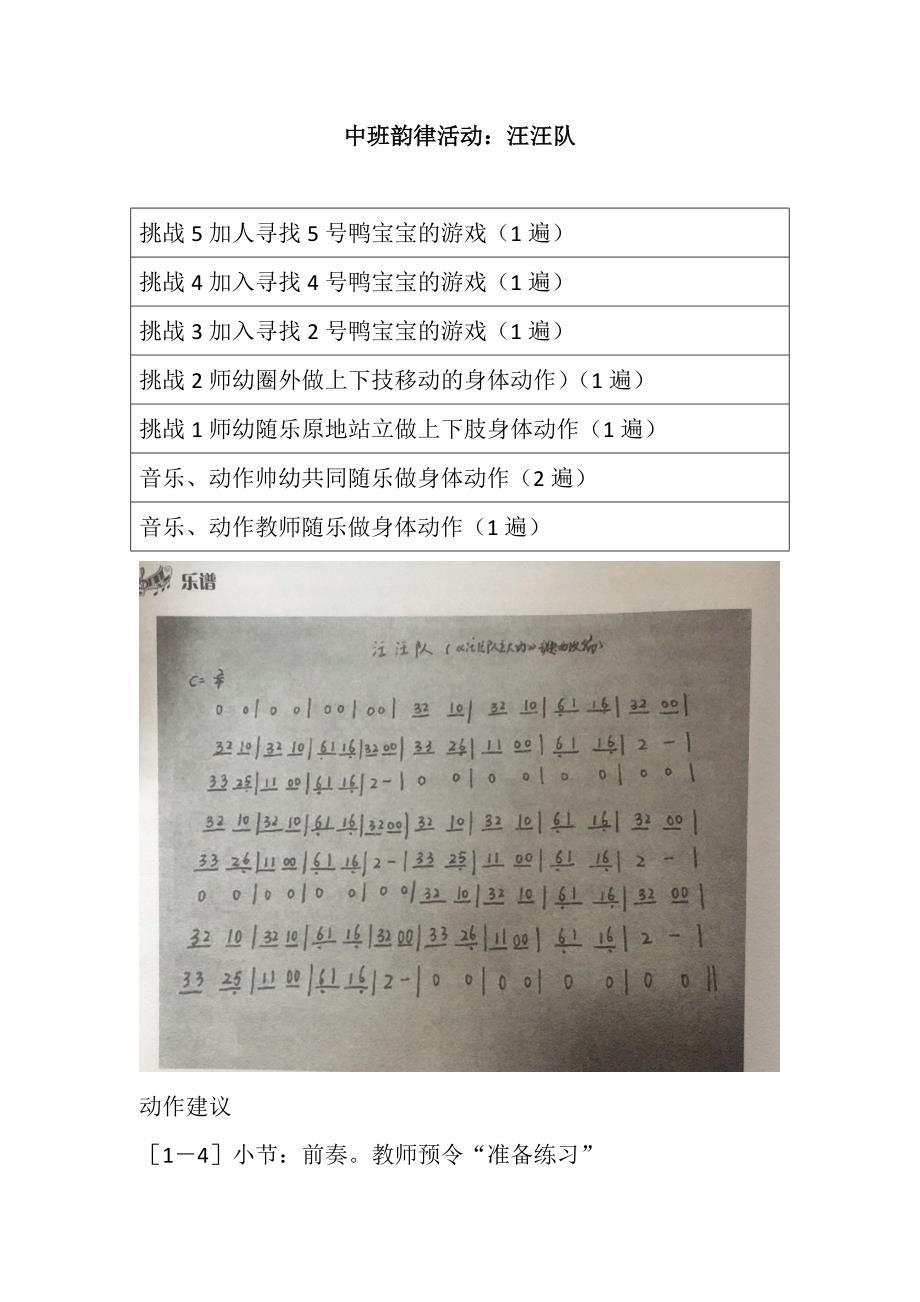 中班韵律活动：汪汪队
挑战 5 加人寻找 5 号鸭宝宝的游戏（1 遍）
挑战 4 加入寻找 4 号鸭宝宝的游戏（1 遍）
挑战 3 加入寻找 2 号鸭宝宝的游戏（1 遍）
挑战 2 师幼圈外做上下技移动的身体动作）（1 遍）
挑战 1 师幼随乐原地站立做上下肢身体动作（1 遍）
音乐、动作帅幼共同随乐做身体动作（2 遍）
音乐、动作教师随乐做身体动作（1 遍）
乐谱
汪汪队（《汪汪队立大功》
C= 2/4
0 0 | 0 0 | 0 0 | 0 0 | 32 10 | 32 10 | 61 16 | 32 00 |
32 10 | 32 10 | 61 16 | 32 00 | 33 26 | 11 00 | 61 16 | 2 - |
33 25 | 11 00 | 61 16 | 2 - | 0 0 | 0 0 | 0 0 | 0 0 |
32 10 | 32 10 | 61 16 | 32 00 | 32 10 | 32 10 | 61 16 | 32 00 |
33 26 | 11 00 | 61 16 | 2 - | 33 25 | 11 00 | 61 16 | 2 - |
0 0 | 0 0 | 0 0 | 0 0 | 32 10 | 32 10 | 61 16 | 32 00 |
32 10 | 32 10 | 61 16 | 32 00 | 33 26 | 11 00 | 61 16 | 2 - |
33 25 | 11 00 | 61 16 | 2 - | 0 0 | 0 0 | 0 0 | 0 0 ||
动作建议
［1－4］小节：前奏。教师预令“准备练习”